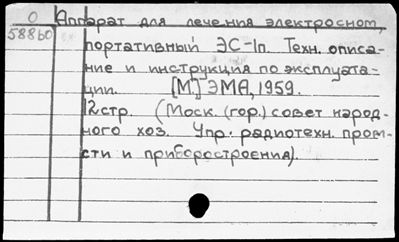 О Аппарат для лечения электросном,
58860 портативный ЭС-1п. Техн. описа-
ние и инструкция по эксплуата-
ции. [М.] ЭМА, 1959.
12 стр. (Моск. (гор.) совет народ-
ного хоз. Упр. радиотехн. пром-
сти и приборостроения).